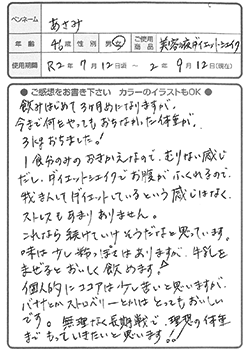 ペンネーム あさみ
年齢 46歳 性別 男・女 ご使用商品 美容液ダイエットシェイク
使用期間 R2年7月12日頃～2年9月12日(現在)
●ご感想をお書き下さい カラーのイラストもOK●
飲みはじめて3ヶ月めになりますが、
今まで何をやってもおちなかった体重が、
3kgおちました！
1食分のみのおきかえなので、むりない感じ
だし、ダイエットシェイクでお腹がふくれるので、
我まんしてダイエットしているという感じはなく、
ストレスもあまりありません。
これなら続けていけそうだなと思っています。
味は少し粉っぽさはありますが、牛乳を
まぜるとおいしく飲めます♪
個人的にココアは少し苦いと思いますが、
バナナとかストロベリーとかはとってもおいしい
です。無理なく長期戦で、理想の体重
までもっていきたいと思います!!